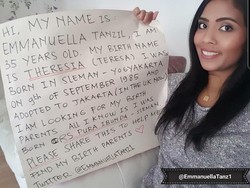 HI, MY NAME IS
EMMANUELLA TANZIL, I AM
35 YEARS OLD. MY BIRTH NAME
IS THERESIA (TERESA) I WAS
BORN IN SLEMAN - YOGYAKARTA
ON 9th OF SEPTEMBER 1985 AND
ADOPTED TO JAKARTA (IN THE UK NOW)
I AM LOOKING FOR MY BIRTH
PARENTS. ALL I KNOW I WAS
BORN @ RS PURA IBUNDA - SLEMAN
PLEASE SHARE THIS TO HELP ME
FIND MY BIRTH PARENTS
TWITTER @EMMANUELLATANZ1
@EmmanuellaTanz1